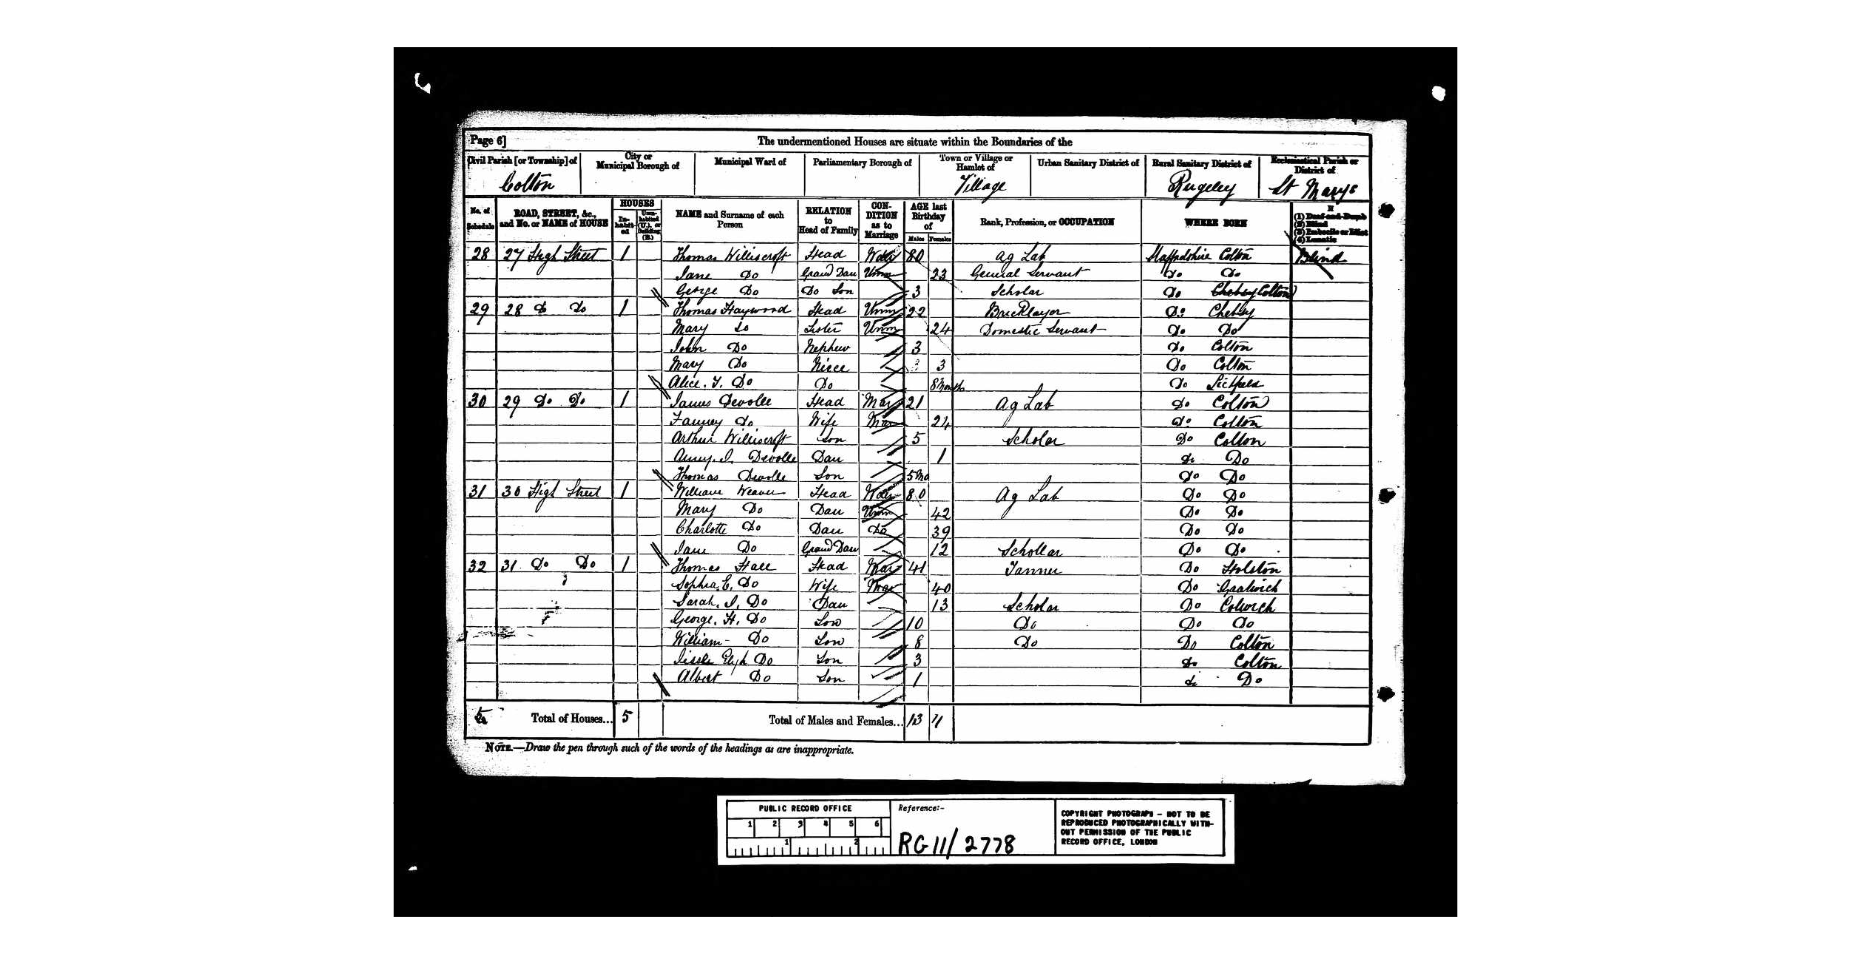 Page 6]
The undermentioned Houses are situate within the Boundaries of the
Civil Parish [or Township] of
City or Municipal Borough of
Municipal Ward of
Parliamentary Borough of
Town or Village or Hamlet of
Urban Sanitary District of
Rural Sanitary District of
Ecclesiastical Parish or District of
Colton Village Rugeley St Marys
No. of Schedule
ROAD, STREET, &c., and No. or NAME of HOUSE
HOUSES
In-habit-ed
Unin-habited (U.), or Building (B.)
NAME and Surname of each Person
RELATION to Head of Family
CON-DITION as to Marriage
AGE last Birthday of
Males Females
Rank, Profession, or OCCUPATION
WHERE BORN
If
(1) Deaf-and-Dumb
(2) Blind
(3) Imbecile or Idiot
(4) Lunatic
28 27 High Street 1 Thomas Williscroft Head Wdr 80 Ag Lab Staffordshire Colton Blind
Jane Do Grand Dau Unm 23 General Servant Do Do
George Do Do Son 3 Scholar Do Colton
29 28 Do Do 1 Thomas Haywood Head Unm 22 Bricklayor Do Chebsy
Mary Do Sister Unm 24 Domestic Servant Do Do
John Do Nephew 3 Do Colton
Mary Do Niece 3 Do Colton
Alice. Do Do 8 Months Do
30 29 Do Do 1 James Devolle Head Mar 21 Ag Lab Do Colton
Fanney Do Wife Mar 24 Do Colton
Arthur Williscroft Son 5 Scholar Do Colton
Devolle Dau 1 Do Do
Thomas Devolle Son 5 Mo Do Do
31 30 High Street 1 William Weaver Head Wdr 80 Ag Lab Do Do
Mary Do Dau Unm 42 Do Do
Charlotte Do Dau Do 39 Do Do
Jane Do Grand Dau 12 Schollar Do Do
32 31 Do Do 1 Thomas Hall Head Mar 41 Tanner Do
Sophia E. Do Wife Mar 40 Do
Sarah. J. Do Dau 13 Scholar Do Colwich
George. H. Do Son 10 Do Do Do
William Do Son 8 Do Do Colton
Do Son 3 Do Colton
Albert Do Son 1 Do Do
5 Total of Houses... 5 Total of Males and Females... 13 11
NOTE.—Draw the pen through such of the words of the headings as are inappropriate.
PUBLIC RECORD OFFICE
1 2 3 4 5 6
1 2
Reference:-
RG 11/2778
COPYRIGHT PHOTOGRAPH - NOT TO BE
REPRODUCED PHOTOGRAPHICALLY WITH-
OUT PERMISSION OF THE PUBLIC
RECORD OFFICE, LONDON